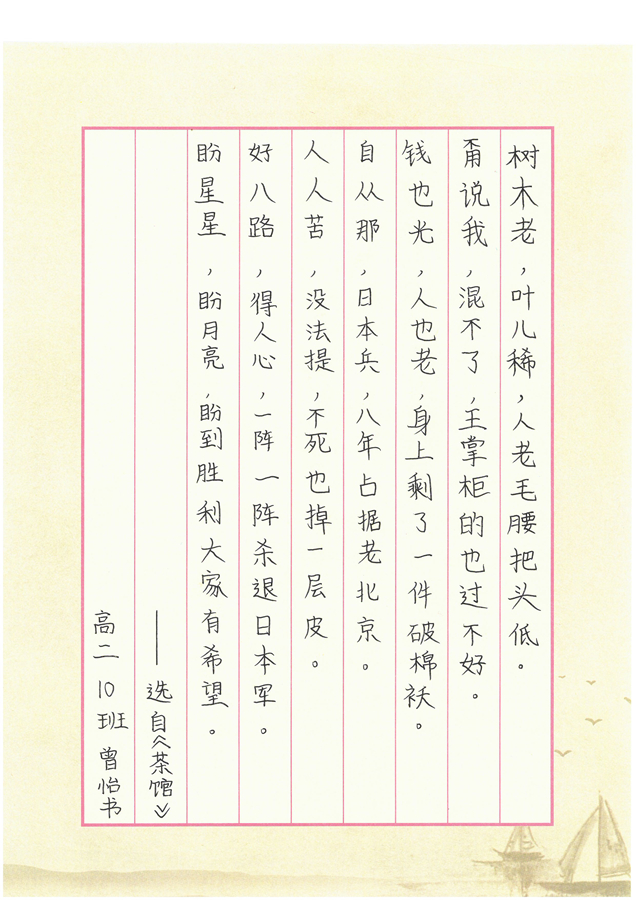 树木老，叶儿稀，人老毛腰把头低。
甭说我，混不了，王掌柜的也过不好。
钱也光，人也老，身上剩了一件破棉袄。
自从那，日本兵，八年占据老北京。
人人苦，没法提，不死也掉一层皮。
好八路，得人心，一阵一阵杀退日本军。
盼星星，盼月亮，盼到胜利大家有希望。
——选自《茶馆》
高二10班曾怡书